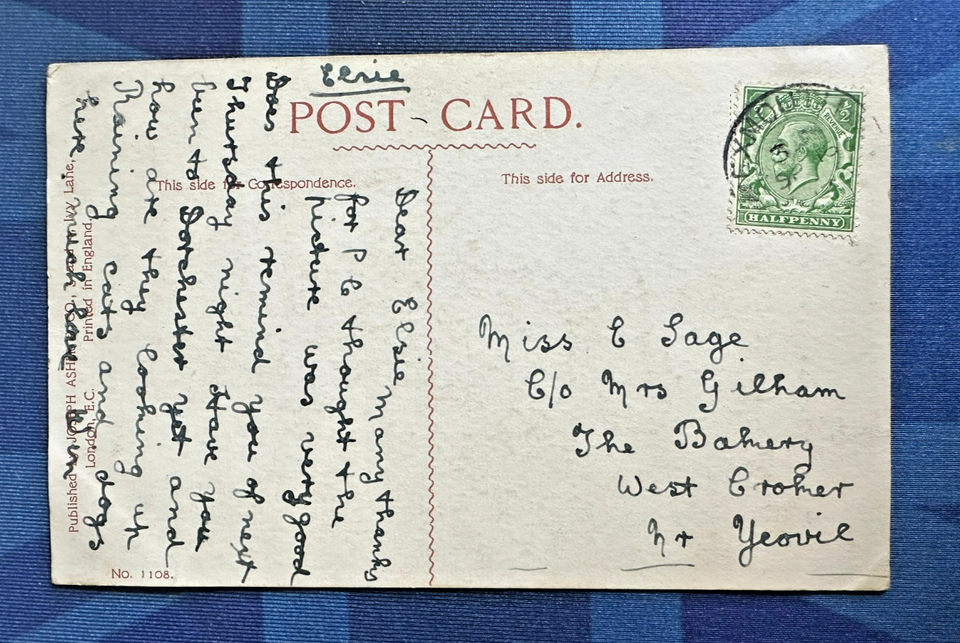 Elsie
POST CARD.
This side for Correspondence.
This side for Address.
HALFPENNY
Dear Elsie Many thanks
for P C thought the
picture was very good
Does this remind you of next
Thursday night Have you
been to Dorchester yet and
how are they looking up
Raining cats and dogs
here much love
Miss E Sage
C/o Mrs Gilham
The Bakery
West Croker
Nr Yeovil
Published by JOSEPH ASHER & CO., Ivy Lane,
London, E.C. Printed in England.
No. 1108.